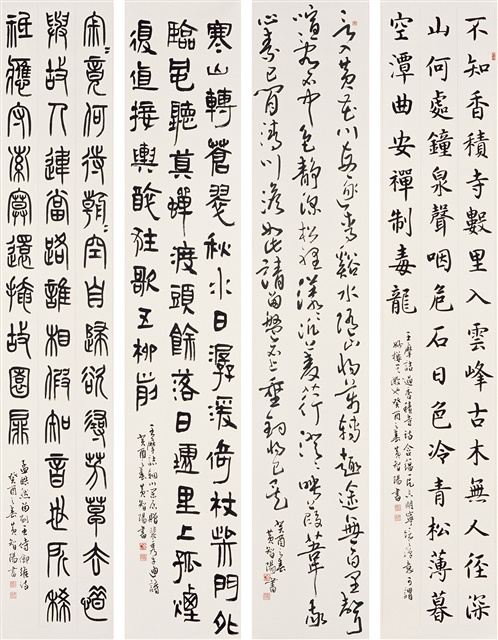 不知香積寺數里入雲峰古木無人徑深
山何處鐘泉聲咽危石日色冷青松薄暮
空潭曲安禪制毒龍
王摩詰過香積寺詩
癸酉之春黃智陽書
言入黃花川每逐青谿水隨山將萬轉趣途無百里聲
喧亂石中色靜深松裡漾漾泛菱荇澄澄映葭葦我
心素已閒清川澹如此請留盤石上垂釣將已矣
癸酉之春
黃智陽書
寒山轉蒼翠秋水日潺湲倚杖柴門外
臨風聽暮蟬渡頭餘落日墟里上孤煙
復值接輿醉狂歌五柳前
王摩詰輞川閒居贈裴秀才迪詩
癸酉之春黃智陽書
寂〻竟何待朝〻空自歸欲尋芳草去惜
與故人違當路誰相假知音世所稀
祗應守索寞還掩故園扉
孟浩然留別王侍御維詩
癸酉之春黃智陽書